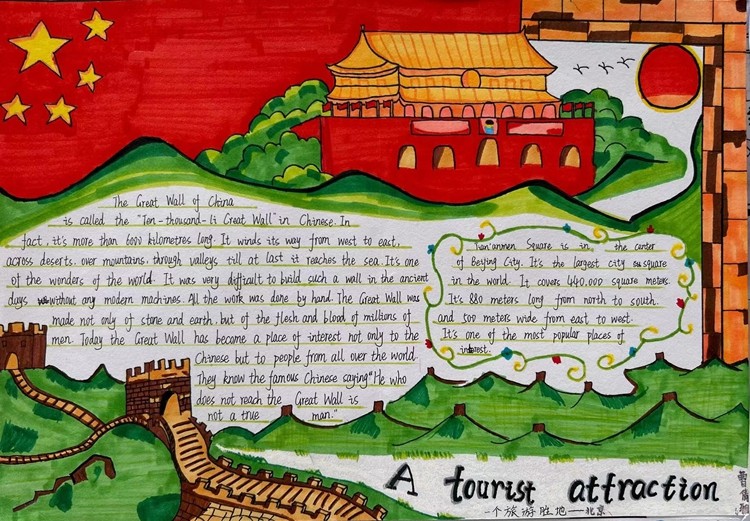 The Great Wall of China
is called the "Ten-thousand-li Great Wall" in Chinese. In
fact, it's more than 6000 kilometres long. It winds its way from west to east,
across deserts, over mountains, through valleys till at last it reaches the sea. It's one
of the wonders of the world. It was very difficult to build such a wall in the ancient
days without any modern machines. All the work was done by hand. The Great Wall was
made not only of stone and earth, but of the flesh and blood of millions of
men. Today the Great Wall has become a place of interest not only to the
Chinese but to people from all over the world.
They know the famous Chinese saying "He who
does not reach the Great Wall is
not a true man."
Tian'anmen Square is in the center
of Beijing City. It's the largest city square
in the world. It covers 440,000 square meters.
It's 880 meters long from north to south
and 500 meters wide from east to west.
It's one of the most popular places of
interest.
A tourist attraction
一个旅游胜地——北京